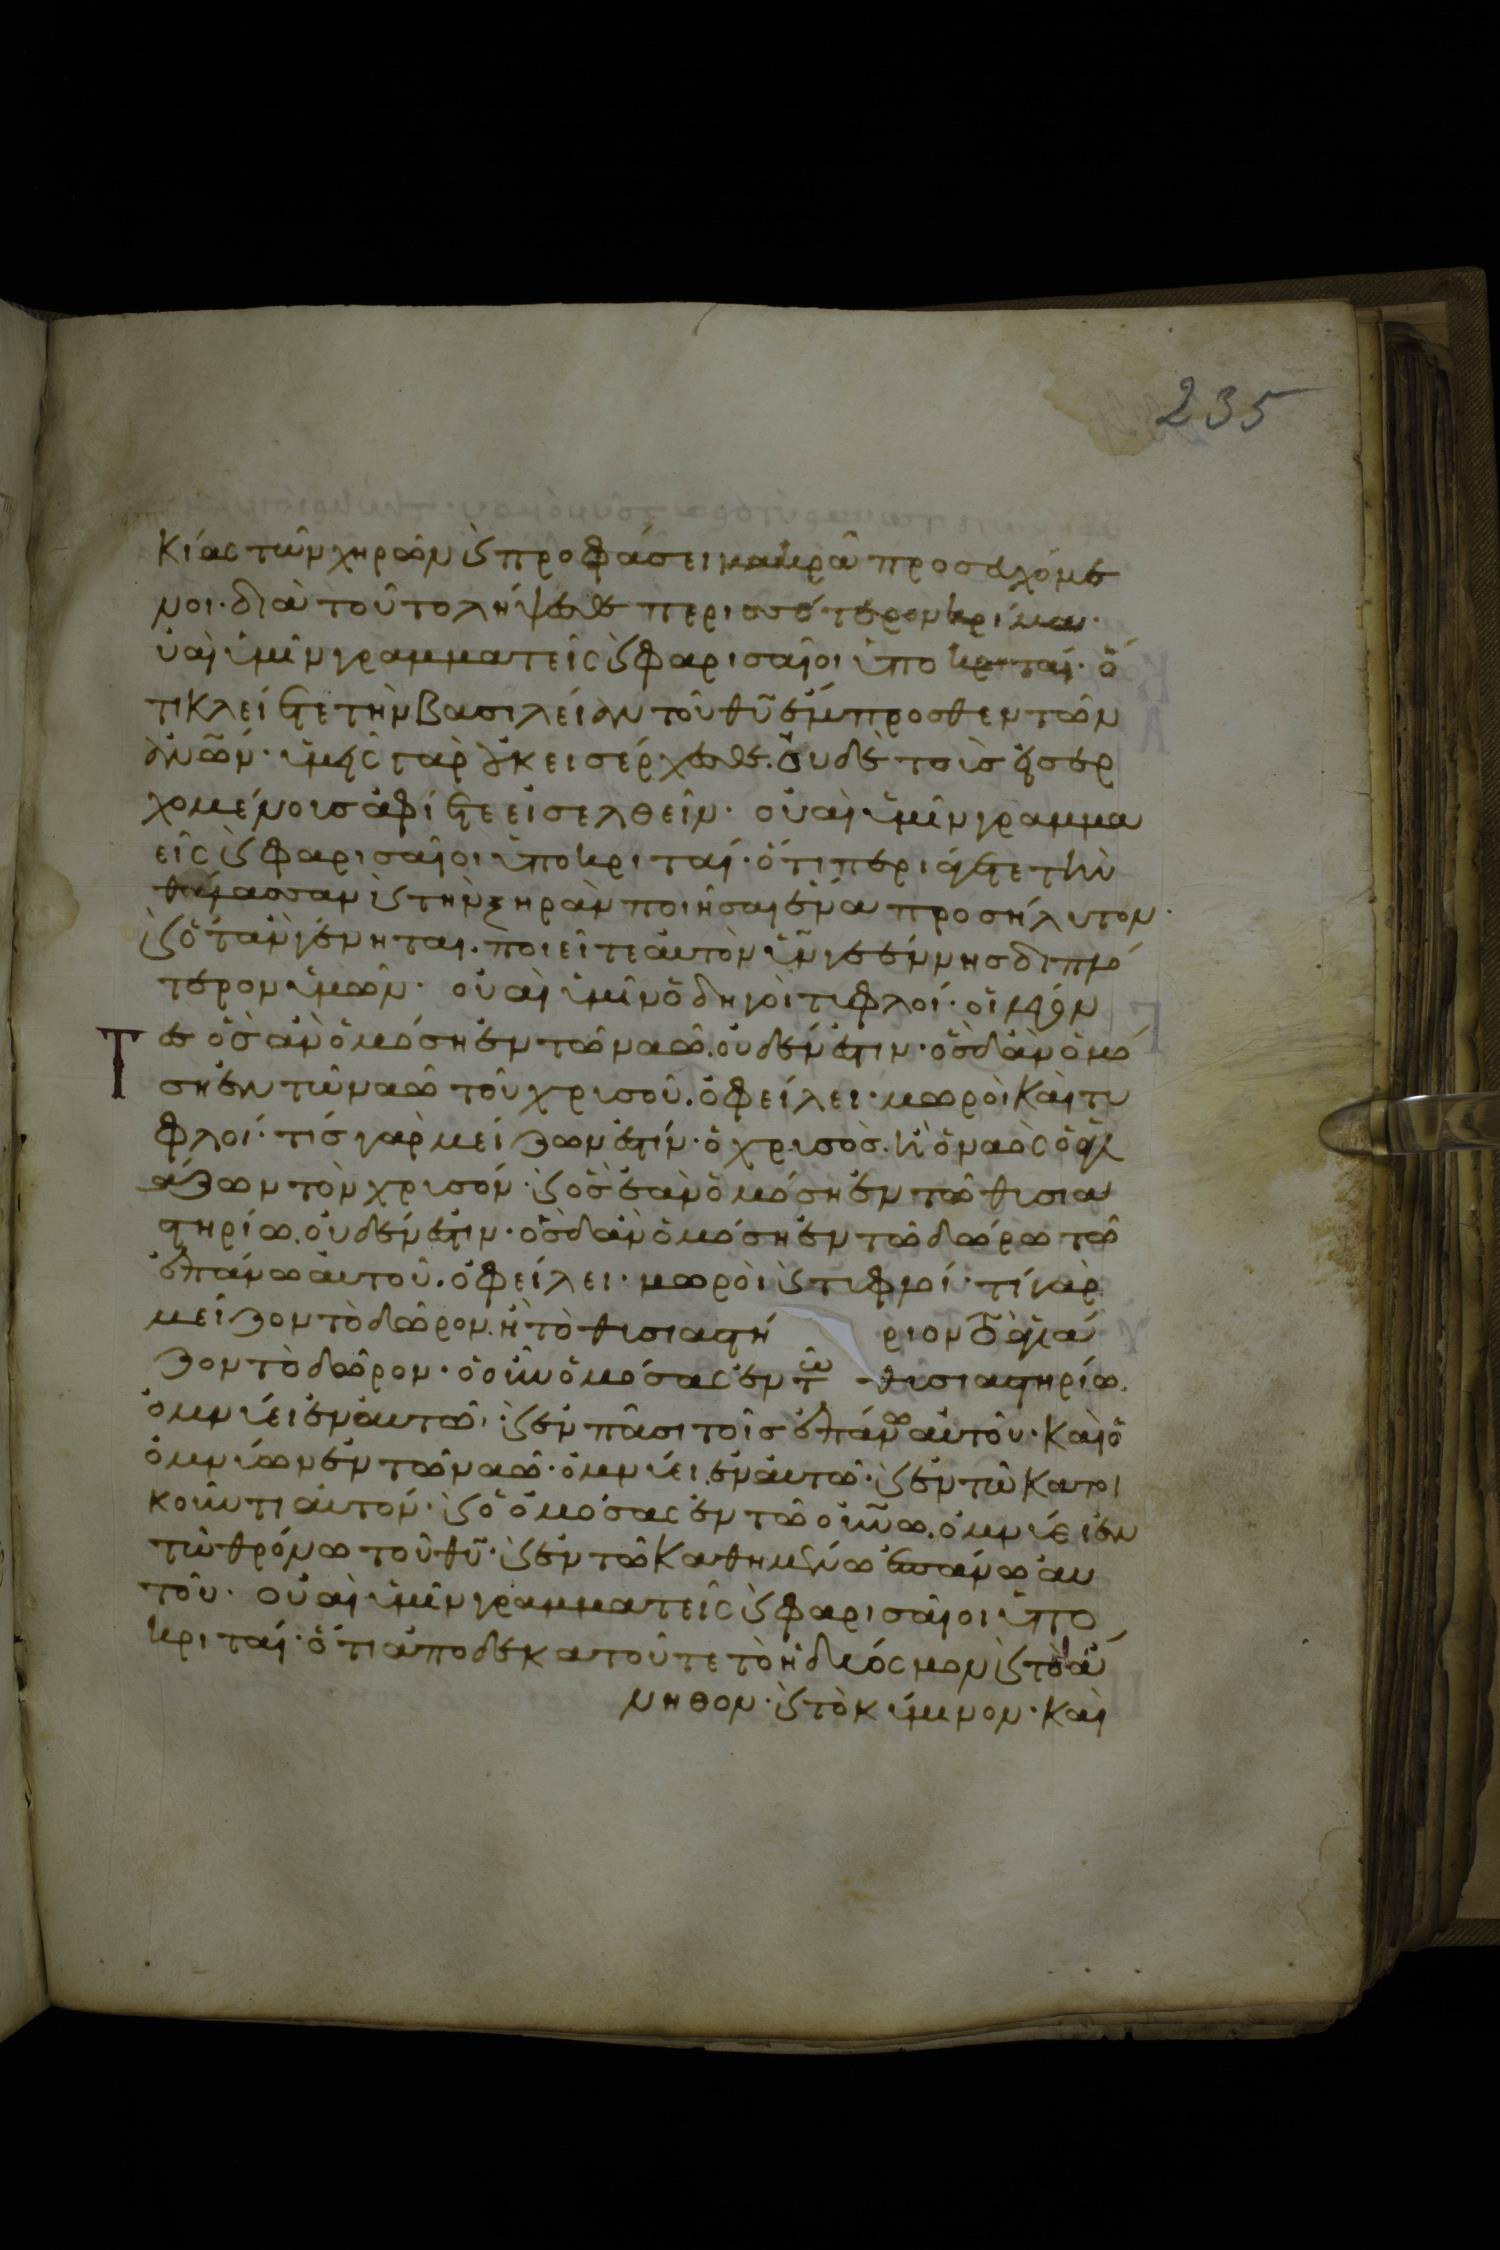 235
κίας τῶν χηρῶν ϗ προφάσει μακρᾶ προσευχόμε
νοι· διὰ τοῦτο λήψεσθε περισσότερον κρίμα·
ὐαὶ ὑμῖν γραμματεῖς ϗ φαρισαῖοι ὑποκριταί· ὅ
τι κλείετε τὴν βασιλείαν τοῦ θῦ ἔμπροσθεν τῶν
ἀνῶν· ὑμεῖς γὰρ οὐκ εισέρχεσθε. οὐδὲ τοὶς εἰσερ
χομένοις ἀφίετε εἰσελθεῖν· οὐαὶ ὑμῖν γραμμα
εῖς ϗ φαρισαῖοι ὑποκριταί· ὅτι περιάγετε τὴν
θάλασσαν ϗ τὴν ξηρὰν ποιῆσαι ἕνα προσήλυτον·
ϗ ὅταν γένηται. ποιεῖτε αὐτὸν ὑὸν γεέννης διπλό
τερον ὑμῶν· οὐαὶ ὑμῖν ὁδηγοὶ τυφλοί· οἱ λέγον
Τ ες ὃς ἀν ὀμόση ἐν τῶ ναῶ. οὐδέν ἐστιν· ὃς δ' ἀν ὀμό
ση ἐν τῶ ναῶ τοῦ χρυσοῦ. ὀφείλει· μωροὶ καὶ τυ
φλοί· τίς γὰρ μείζων ἐστίν· ὁ χρυσὸς. ἢ ὁ ναὸς ὁ ἁγι
άζων τὸν χρυσόν· ϗ ὃς ἐὰν ὀμόση ἐν τῶ θυσια
στηρίω. οὐδέν ἐστιν· ὃς δ' ἀν ὀμόση ἐν τῶ δώρω τῶ
ἐπάνω αὐτοῦ. ὀφείλει· μωροὶ ϗ τυφλοί· τί γὰρ
μεῖζον τὸ δῶρον. ἢ τὸ θυσιαστή ριον τὸ ἁγιά
ζον τὸ δῶρον· ὁ οὖν ὀμόσας ἐν τῶ θυσιαστηρίω.
ὀμνύει ἐν αὐτῶ· ϗ ἐν πᾶσι τοῖς ἐπάνω αὐτοῦ· καὶ ὁ
ὀμνύων ἐν τῶ ναῶ· ὀμνύει ἐν αὐτῶ· ϗ ἐν τῶ κατοι
κοῦντι αὐτόν· ϗ ὁ ὀμόσας ἐν τῶ οὐνῶ. ὀμνύει ἐν
τῶ θρόνω τοῦ θῦ· ϗ ἐν τῶ καθημένω ἐπάνω αὐ
τοῦ· οὐαὶ ὑμῖν γραμματεῖς ϗ φαρισαῖοι ὑπο
κριταί· ὅτι ἀποδεκατοῦτε τὸ ἡδύοσμον ϗ τὸ ἄ
νηθον· ϗ τὸ κύμινον· καὶ